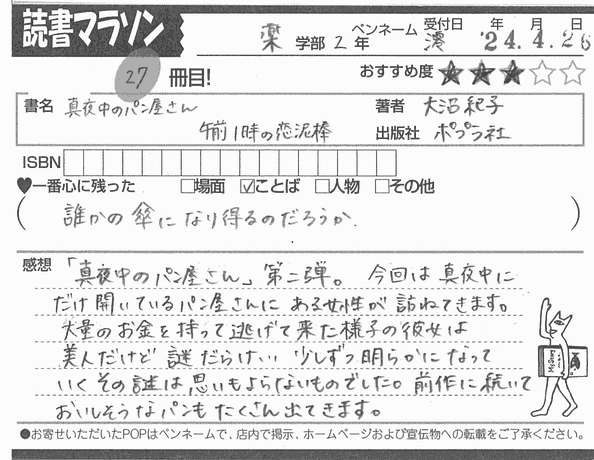 読書マラソン
薬 学部 2 年 ペンネーム 澪 受付日 '24年 4月 26日
27 冊目! おすすめ度 ★★★☆☆
書名 真夜中のパン屋さん 著者 大沼紀子
午前1時の恋泥棒 出版社 ポプラ社
ISBN
♥一番心に残った □場面 ☑ことば □人物 □その他
(誰かの傘になり得るのだろうか.)
感想 「真夜中のパン屋さん」第二弾。今回は真夜中に
だけ開いているパン屋さんに ある女性が訪ねてきます。
大量のお金を持って逃げて来た様子の彼女は
美人だけど謎だらけ… 少しずつ明らかになって
いくその謎は思いもよらないものでした。前作に続いて
おいしそうなパンもたくさん出てきます。
●お寄せいただいたPOPはペンネームで、店内で掲示、ホームページおよび宣伝物への転載をご了承ください。